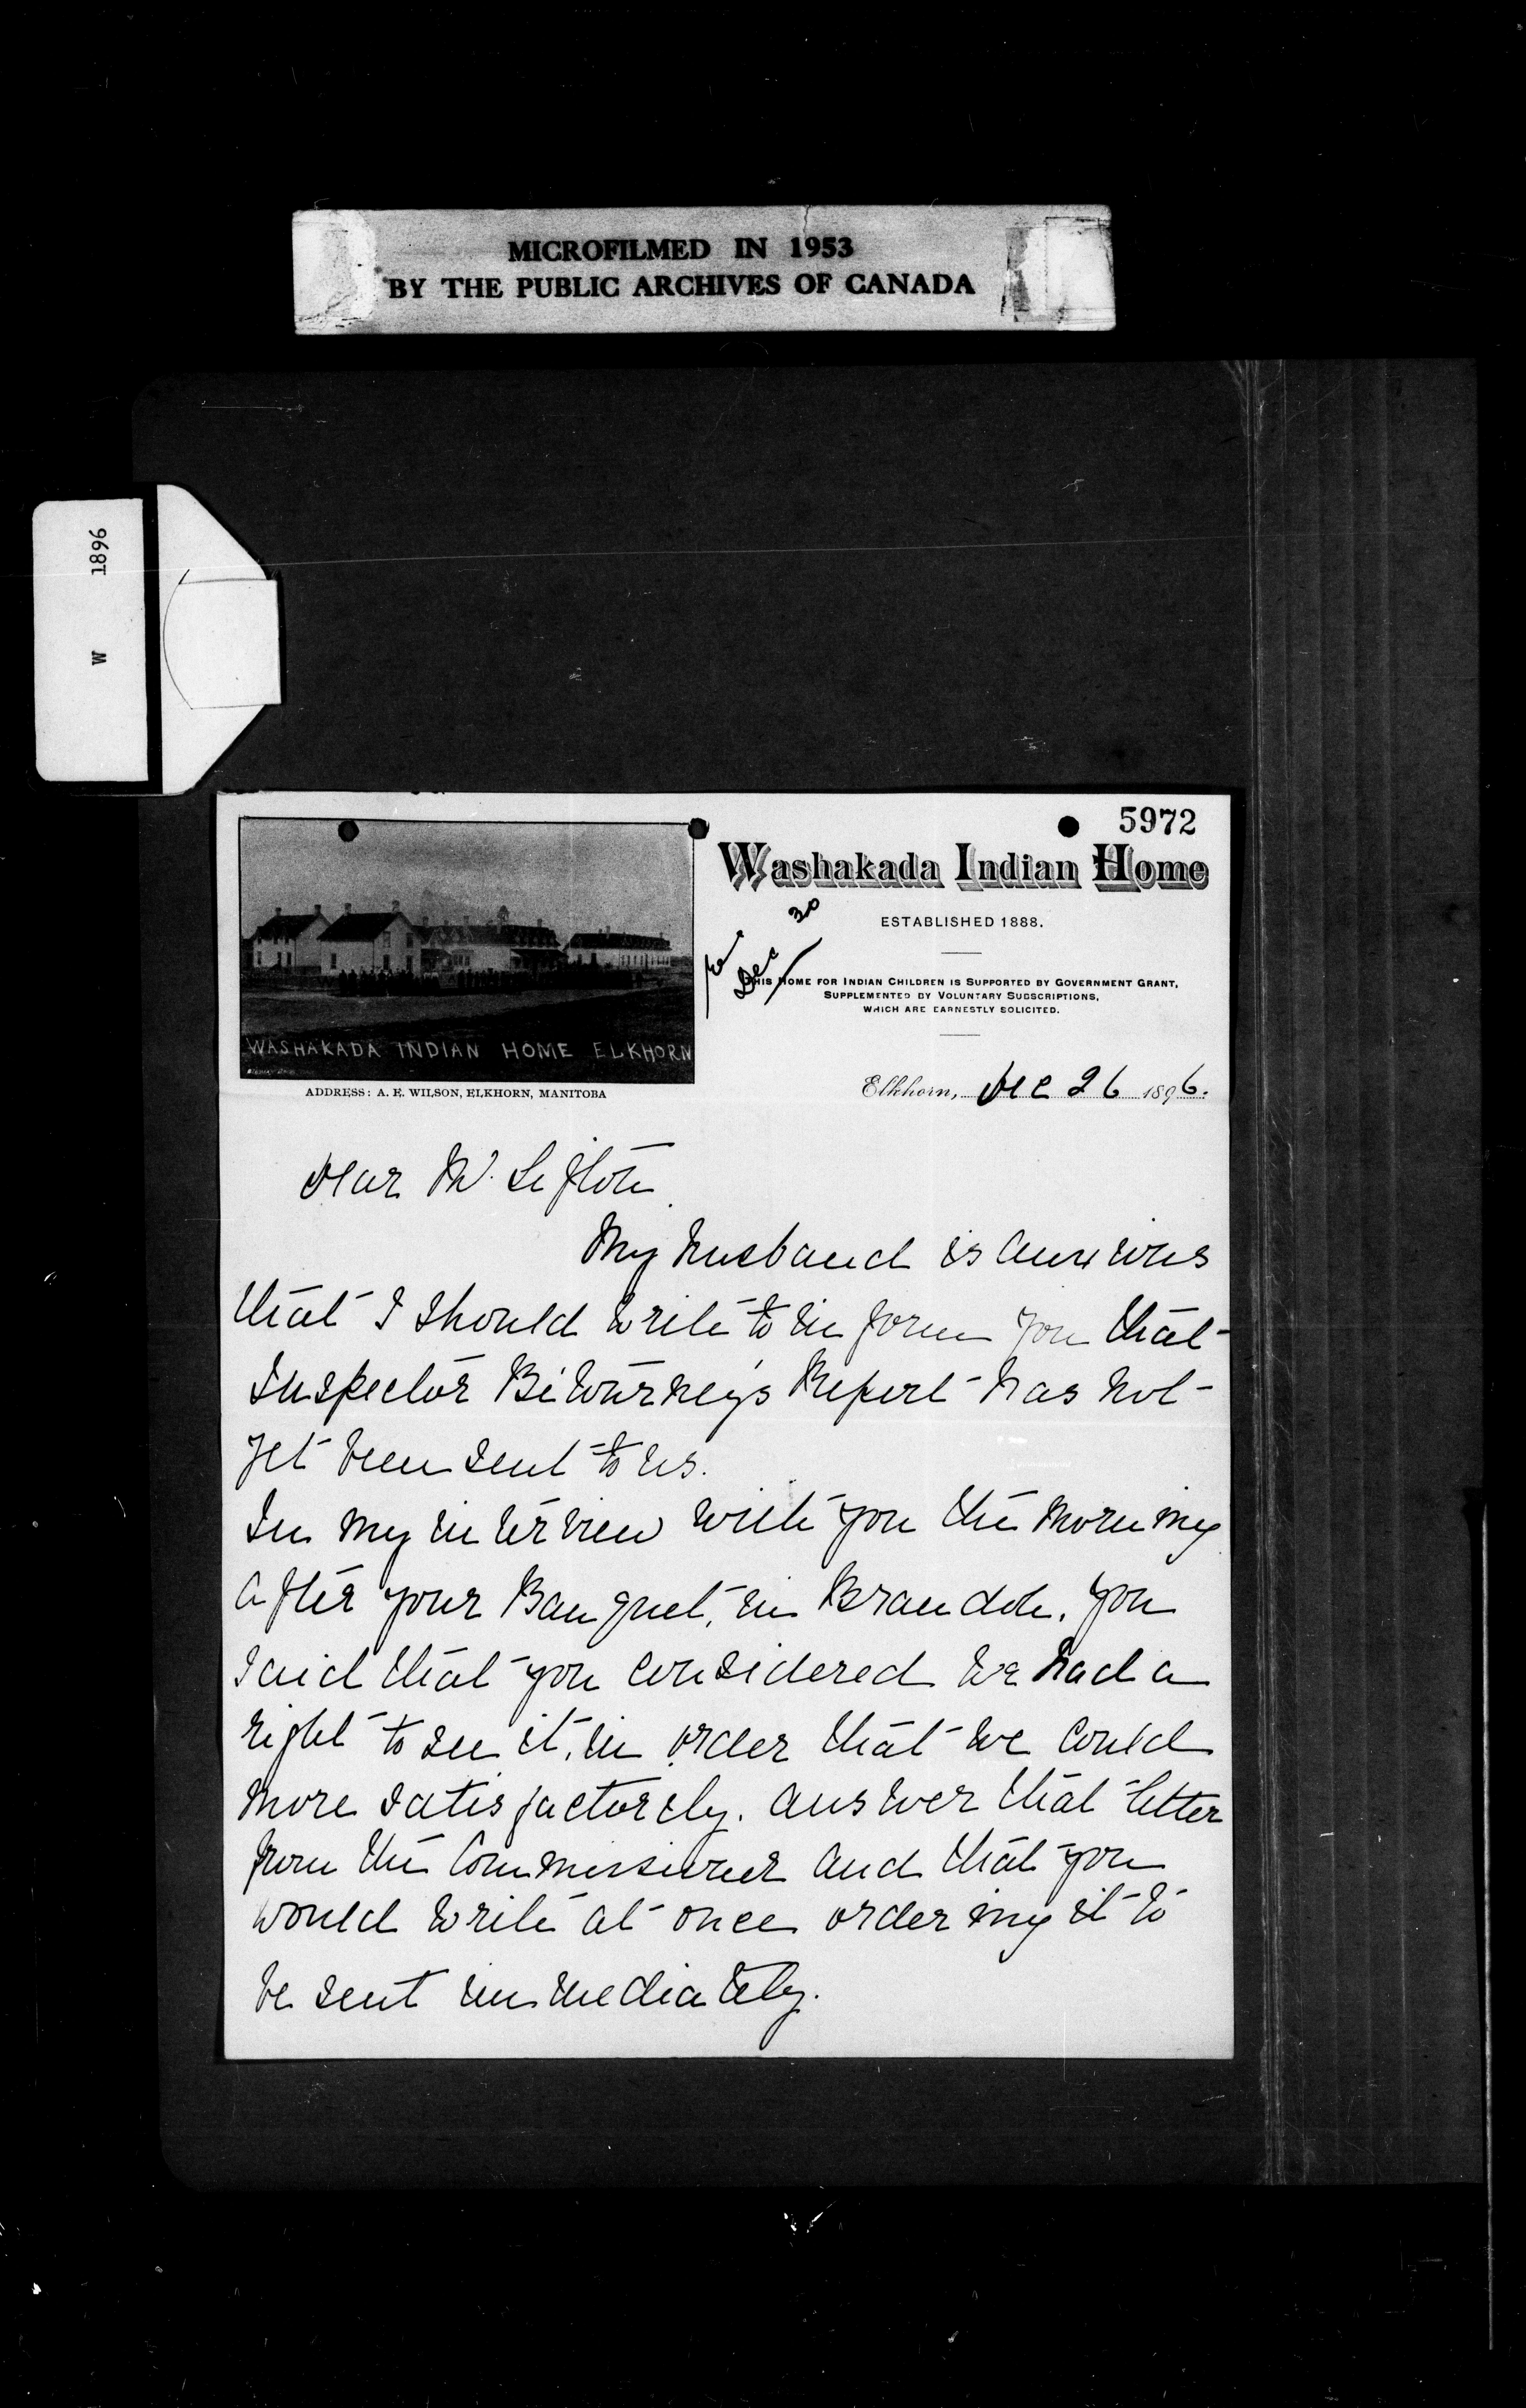 MICROFILMED IN 1953
BY THE PUBLIC ARCHIVES OF CANADA
W 1896
5972
Washakada Indian Home
ESTABLISHED 1888.
Dec 30
THIS HOME FOR INDIAN CHILDREN IS SUPPORTED BY GOVERNMENT GRANT,
SUPPLEMENTED BY VOLUNTARY SUBSCRIPTIONS,
WHICH ARE EARNESTLY SOLICITED.
WASHAKADA INDIAN HOME ELKHORN
ADDRESS: A. E. WILSON, ELKHORN, MANITOBA
Elkhorn, Dec 26 1896.
Dear Mr. Sifton
My husband is anxious
that I should write to inform you that
Inspector Betourney's Report has not
yet been sent to us.
In my interview with you the morning
after your Banquet, in Brandon, you
said that you considered we had a
right to see it, in order that we could
more satisfactorily, answer that letter
from the Commissioner and that you
would write at once ordering it to
be sent immediately.